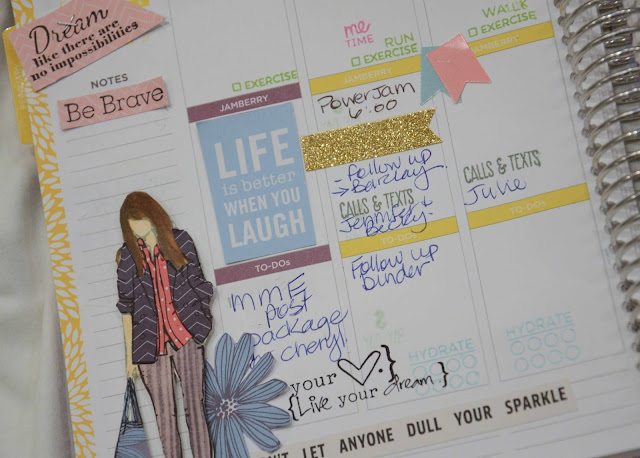 Dream
like there are
no impossibilities
NOTES
Be Brave
EXERCISE
JAMBERRY
LIFE
is better
WHEN YOU
LAUGH
TO-DOs
MME
Post
package
cheryl
me
TIME
RUN
EXERCISE
JAMBERRY
PowerJam
6:00
- follow up
→ Barclay
CALLS & TEXTS
Jennifer &
Becky
TO-DOs
Follow up
HYDRATE
WALK
EXERCISE
JAMBERRY
CALLS & TEXTS
Julie
TO-DOs
HYDRATE
your
{Live your dream.}
LET ANYONE DULL YOUR SPARKLE